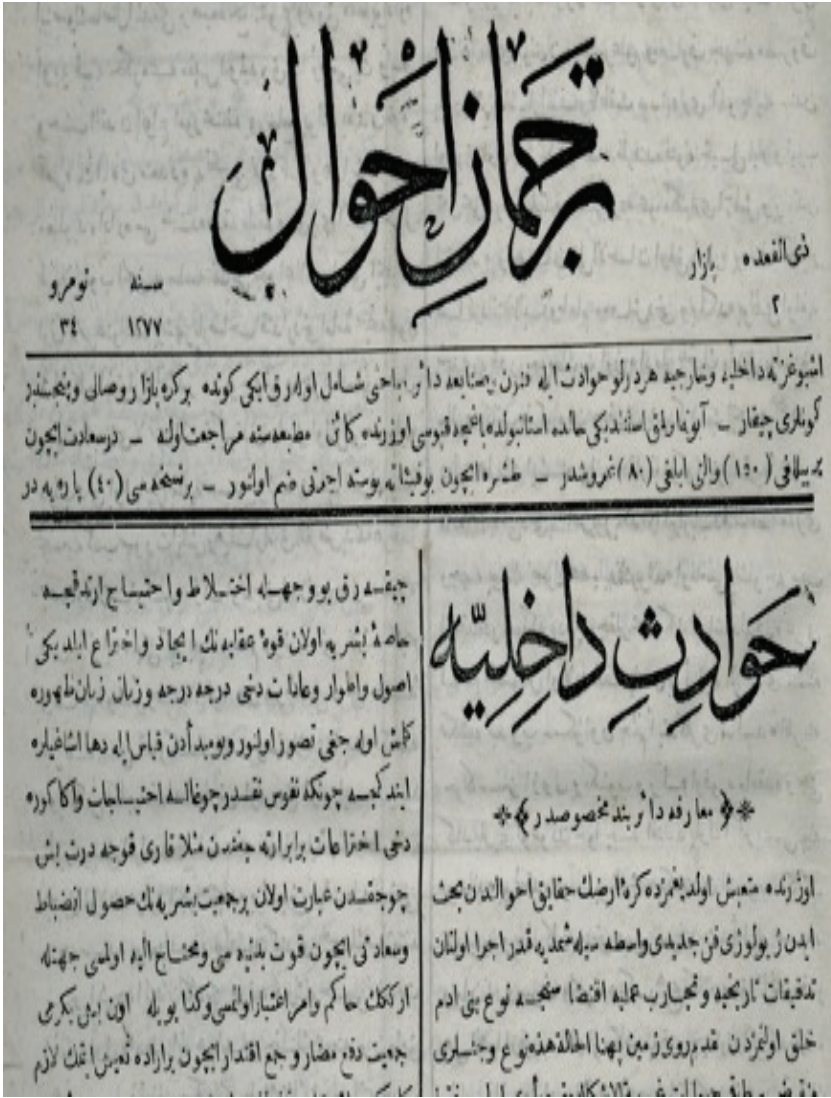 ترجمان احوال
ذی القعده بازار سنه نومرو
٢ ١٢٧٧ ٣٤
اشبو غزته داخلیه وخارجیه هر درلو حوادث ایله فنون وصنایعه دائر مباحثی شامل اوله رق ایکی کونده بر کره بازار وصالی وپنجشنبه
کونلری چیقار – آبونه اولمق استندیکی حالده استانبولده باغچه قپوسی اوزرنده کائن مطبعه سنه مراجعت اولنه – درسعادت ایچون
بر ییللغی (١٥٠) والتی ایلغی (٨٠) غروشدر – طشره ایچون بو فیئاته پوسته اجرتی ضم اولنور – بر نسخه سی (٤٠) پاره یه در
حوادث داخلیه
معارفه دائر بند مخصوصدر
اوزرنده متعیش اولدیغمزده کرهٔ ارضك حقایق احوالندن بحث
ایدن ژیولوژی فن جدیدی واسطه سیله شمدیه قدر اجرا اولنان
تدقیقات تاریخیه وتجارب عملیه اقتضاسنجه نوع بنی ادم
خلق اولنمزدن مقدم روی زمین پهنا الحالة هذه نوع وجنسلری
چیقسه رق بو وجهله اختلاط واحتیاج ارتدقجه
خاصهٔ بشریه اولان قوهٔ عقلیه نك ایجاد واختراع ایلدیکی
اصول واطوار وعادات دخی درجه درجه وزمان زمان ظهوره
کلمش اوله جغی تصور اولنور وبو مبدأدن قیاس ایله دها اشاغیلره
ایندکجه چونکه نفوس نقدر چوغالسه احتیاجات واکا کوره
دخی اختراعات برابر ارته جغندن مثلا قاری قوجه درت بش
چوجقدن عبارت اولان بر جمعیت بشریه نك حصول انضباط
وسعادتی ایچون قوت بدنیه سی ومحتاج الیه اولمسی جهتله
ارککك حاکم وامر اعتبار اولنمسی وکذا بویله اون یکرمی
جمعیت دفع مضار وجمع اقتدار ایچون بر اراده تعیش ایتمك لازم